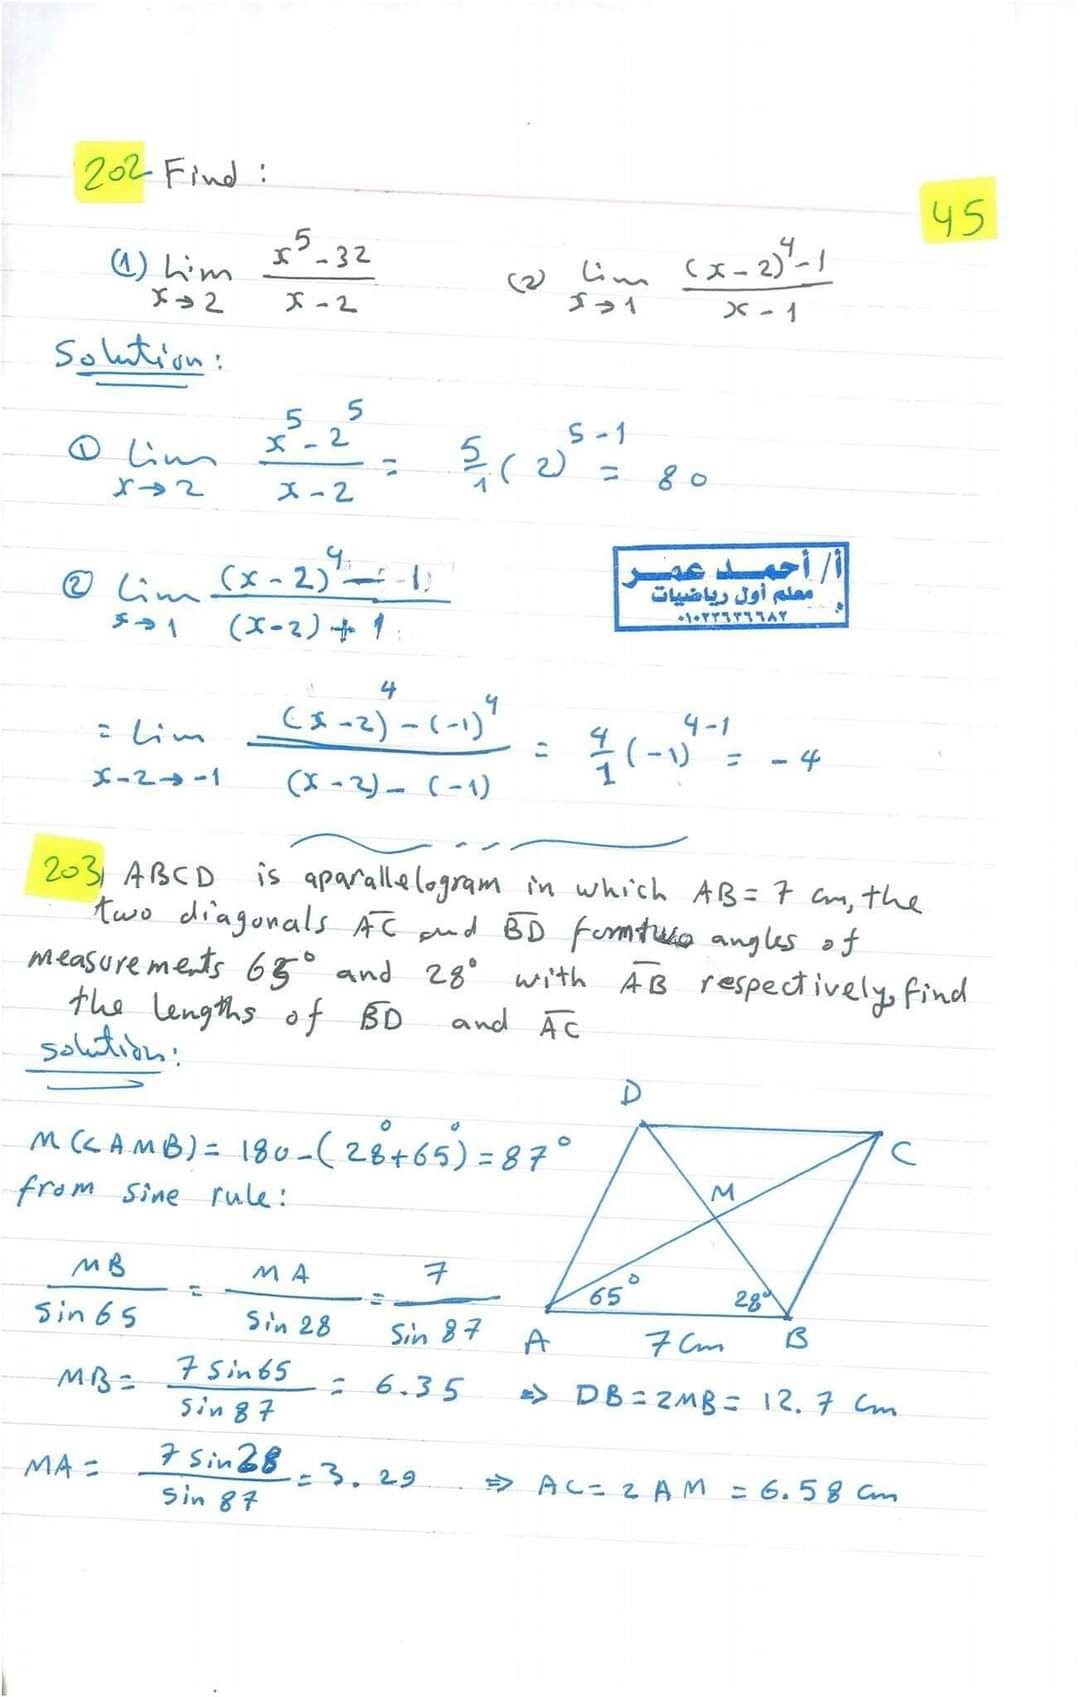 202 Find :
45
(1) lim x→2 (x^5 - 32)/(x - 2)   (2) lim x→1 ((x - 2)^4 - 1)/(x - 1)
Solution :
① lim x→2 (x^5 - 2^5)/(x - 2) = 5/1 (2)^(5-1) = 80
② lim x→1 ((x - 2)^4 - 1)/((x - 2) + 1)
أ/ أحمد عمر
معلم أول رياضيات
٠١٠٢٢٦٢٦٦٨٢
= lim x-2→-1 ((x - 2)^4 - (-1)^4)/((x - 2) - (-1)) = 4/1 (-1)^(4-1) = - 4
203) ABCD is aparallelogram in which AB = 7 cm, the
two diagonals AC and BD form two angles of
measurements 65° and 28° with AB respectively, find
the lengths of BD and AC
solution :
M(<AMB) = 180 - (28° + 65°) = 87°
from sine rule :
MB/sin 65 = MA/sin 28 = 7/sin 87
MB = 7 sin 65/sin 87 = 6.35 ⇒ DB = 2MB = 12.7 cm
MA = 7 sin 28/sin 87 = 3.29 ⇒ AC = 2 AM = 6.58 cm
D
C
M
65°
28°
A
7 cm
B